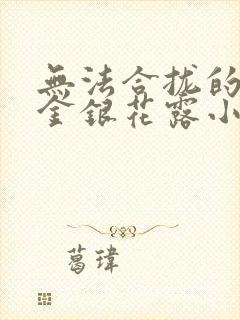 無法合拢的
金銀花露小
葛瑋